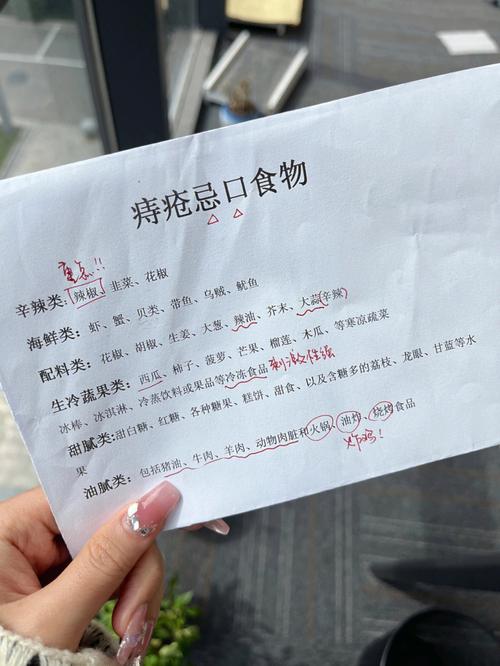 痔疮忌口食物
重点!!
辛辣类：辣椒、韭菜、花椒
海鲜类：虾、蟹、贝类、带鱼、乌贼、鱿鱼
配料类：花椒、胡椒、生姜、大葱、辣油、芥末、大蒜(辛辣)
生冷蔬果类：西瓜、柿子、菠萝、芒果、榴莲、木瓜、等寒凉蔬菜
冰棒、冰淇淋、冷蒸饮料或果品等冷冻食品 刺激性强
甜腻类：甜白糖、红糖、各种糖果、糕饼、甜食、以及含糖多的荔枝、龙眼、甘蓝等水
果
油腻类：包括猪油、牛肉、羊肉、动物肉脏和火锅、油炸、烧烤食品
炸鸡!